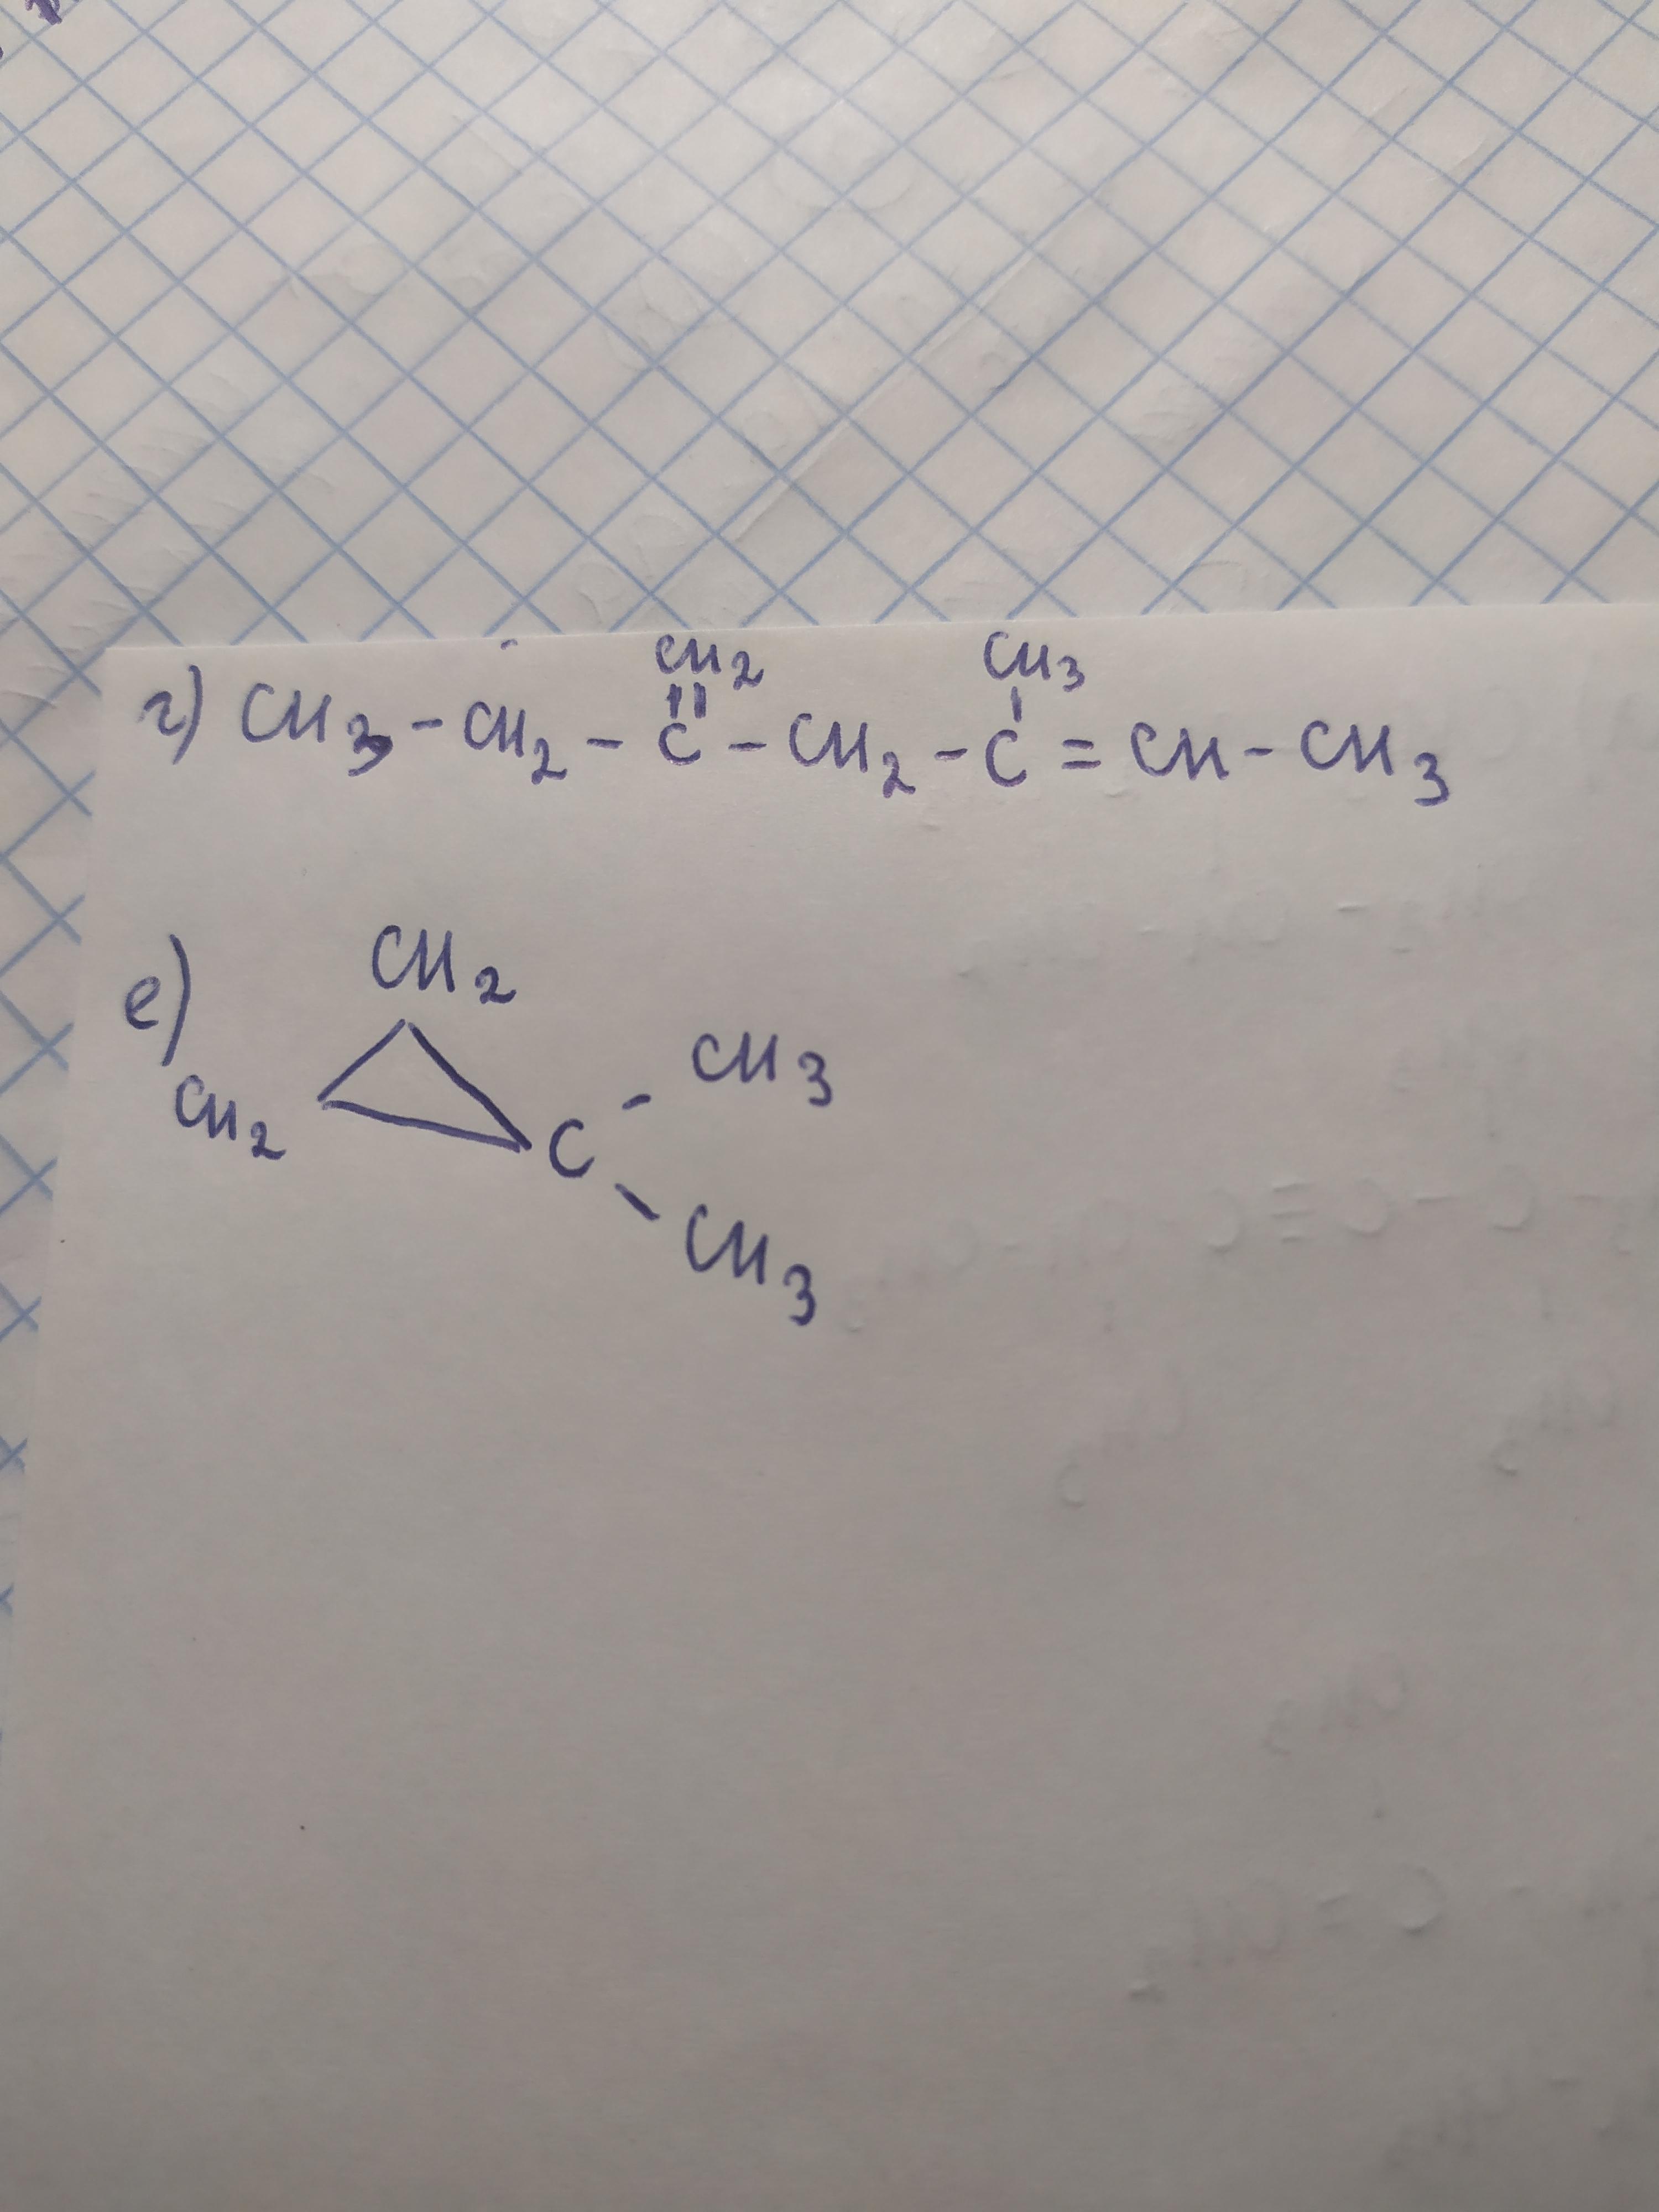 CH2 CH3
г) CH3 - CH2 - C - CH2 - C = CH - CH3
е) CH2
CH2 C - CH3
- CH3